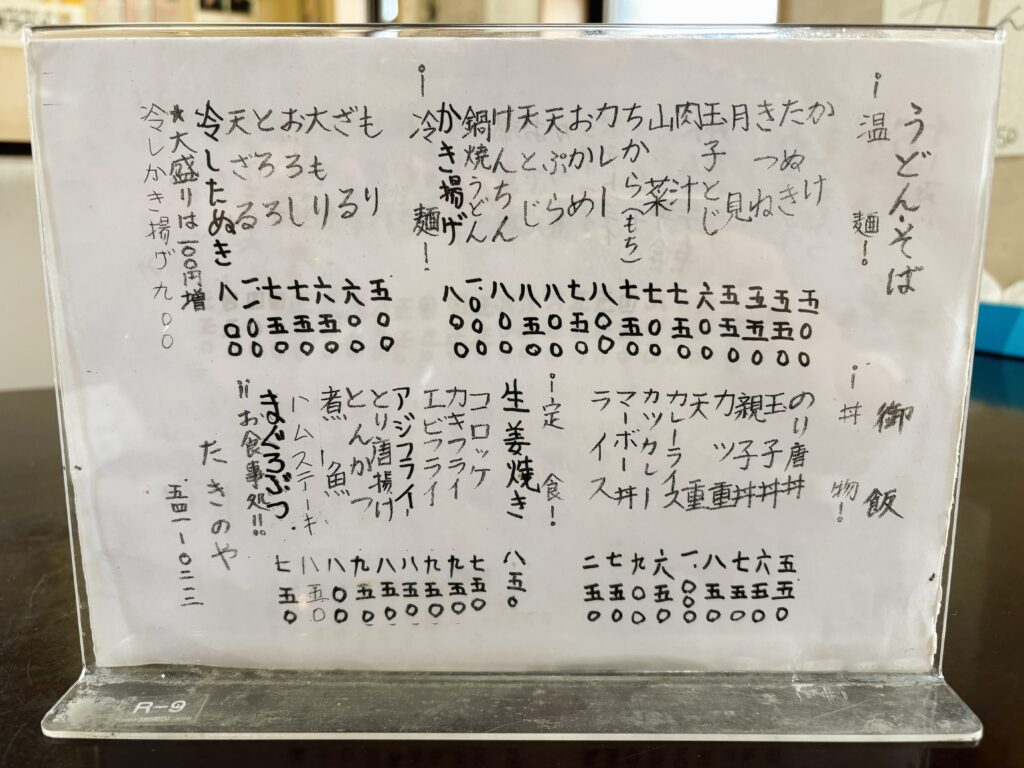 うどん・そば
¡温麺!
かけ 五〇〇
たぬき 五五〇
きつね 五五〇
月見 五五〇
玉子とじ 六〇〇
肉汁 七五〇
山菜 七〇〇
ちから(もち) 七五〇
カレー 八〇〇
おかめ 七五〇
天ぷら 八〇〇
天とじ 八五〇
けんちん 八〇〇
鍋焼うどん 一.〇〇〇
かき揚げ 八〇〇
¡冷麺!
もり 五〇〇
ざる 六〇〇
大もり 六五〇
おろし 七五〇
とろろ 七五〇
天ざる 一.一〇〇
冷したぬき 八〇〇
★大盛りは一〇〇円増
冷しかき揚げ 九〇〇
御飯
¡丼物!
のり唐丼 五五〇
玉子丼 六五〇
親子丼 七五〇
カツ重 八五〇
天重 一.〇〇〇
カレーライス 六五〇
カツカレー 九〇〇
マーボー丼 七五〇
ライス 二五〇
¡定食!
生姜焼き 八五〇
コロッケ 七五〇
カキフライ 九五〇
エビフライ 九五〇
アジフライ 八五〇
とり唐揚げ 八五〇
とんかつ 九〇〇
煮魚 八〇〇
ハムステーキ 八五〇
まぐろぶつ 七五〇
¡¡お食事処!!
たきのや
五四一ー一〇二三
R-9